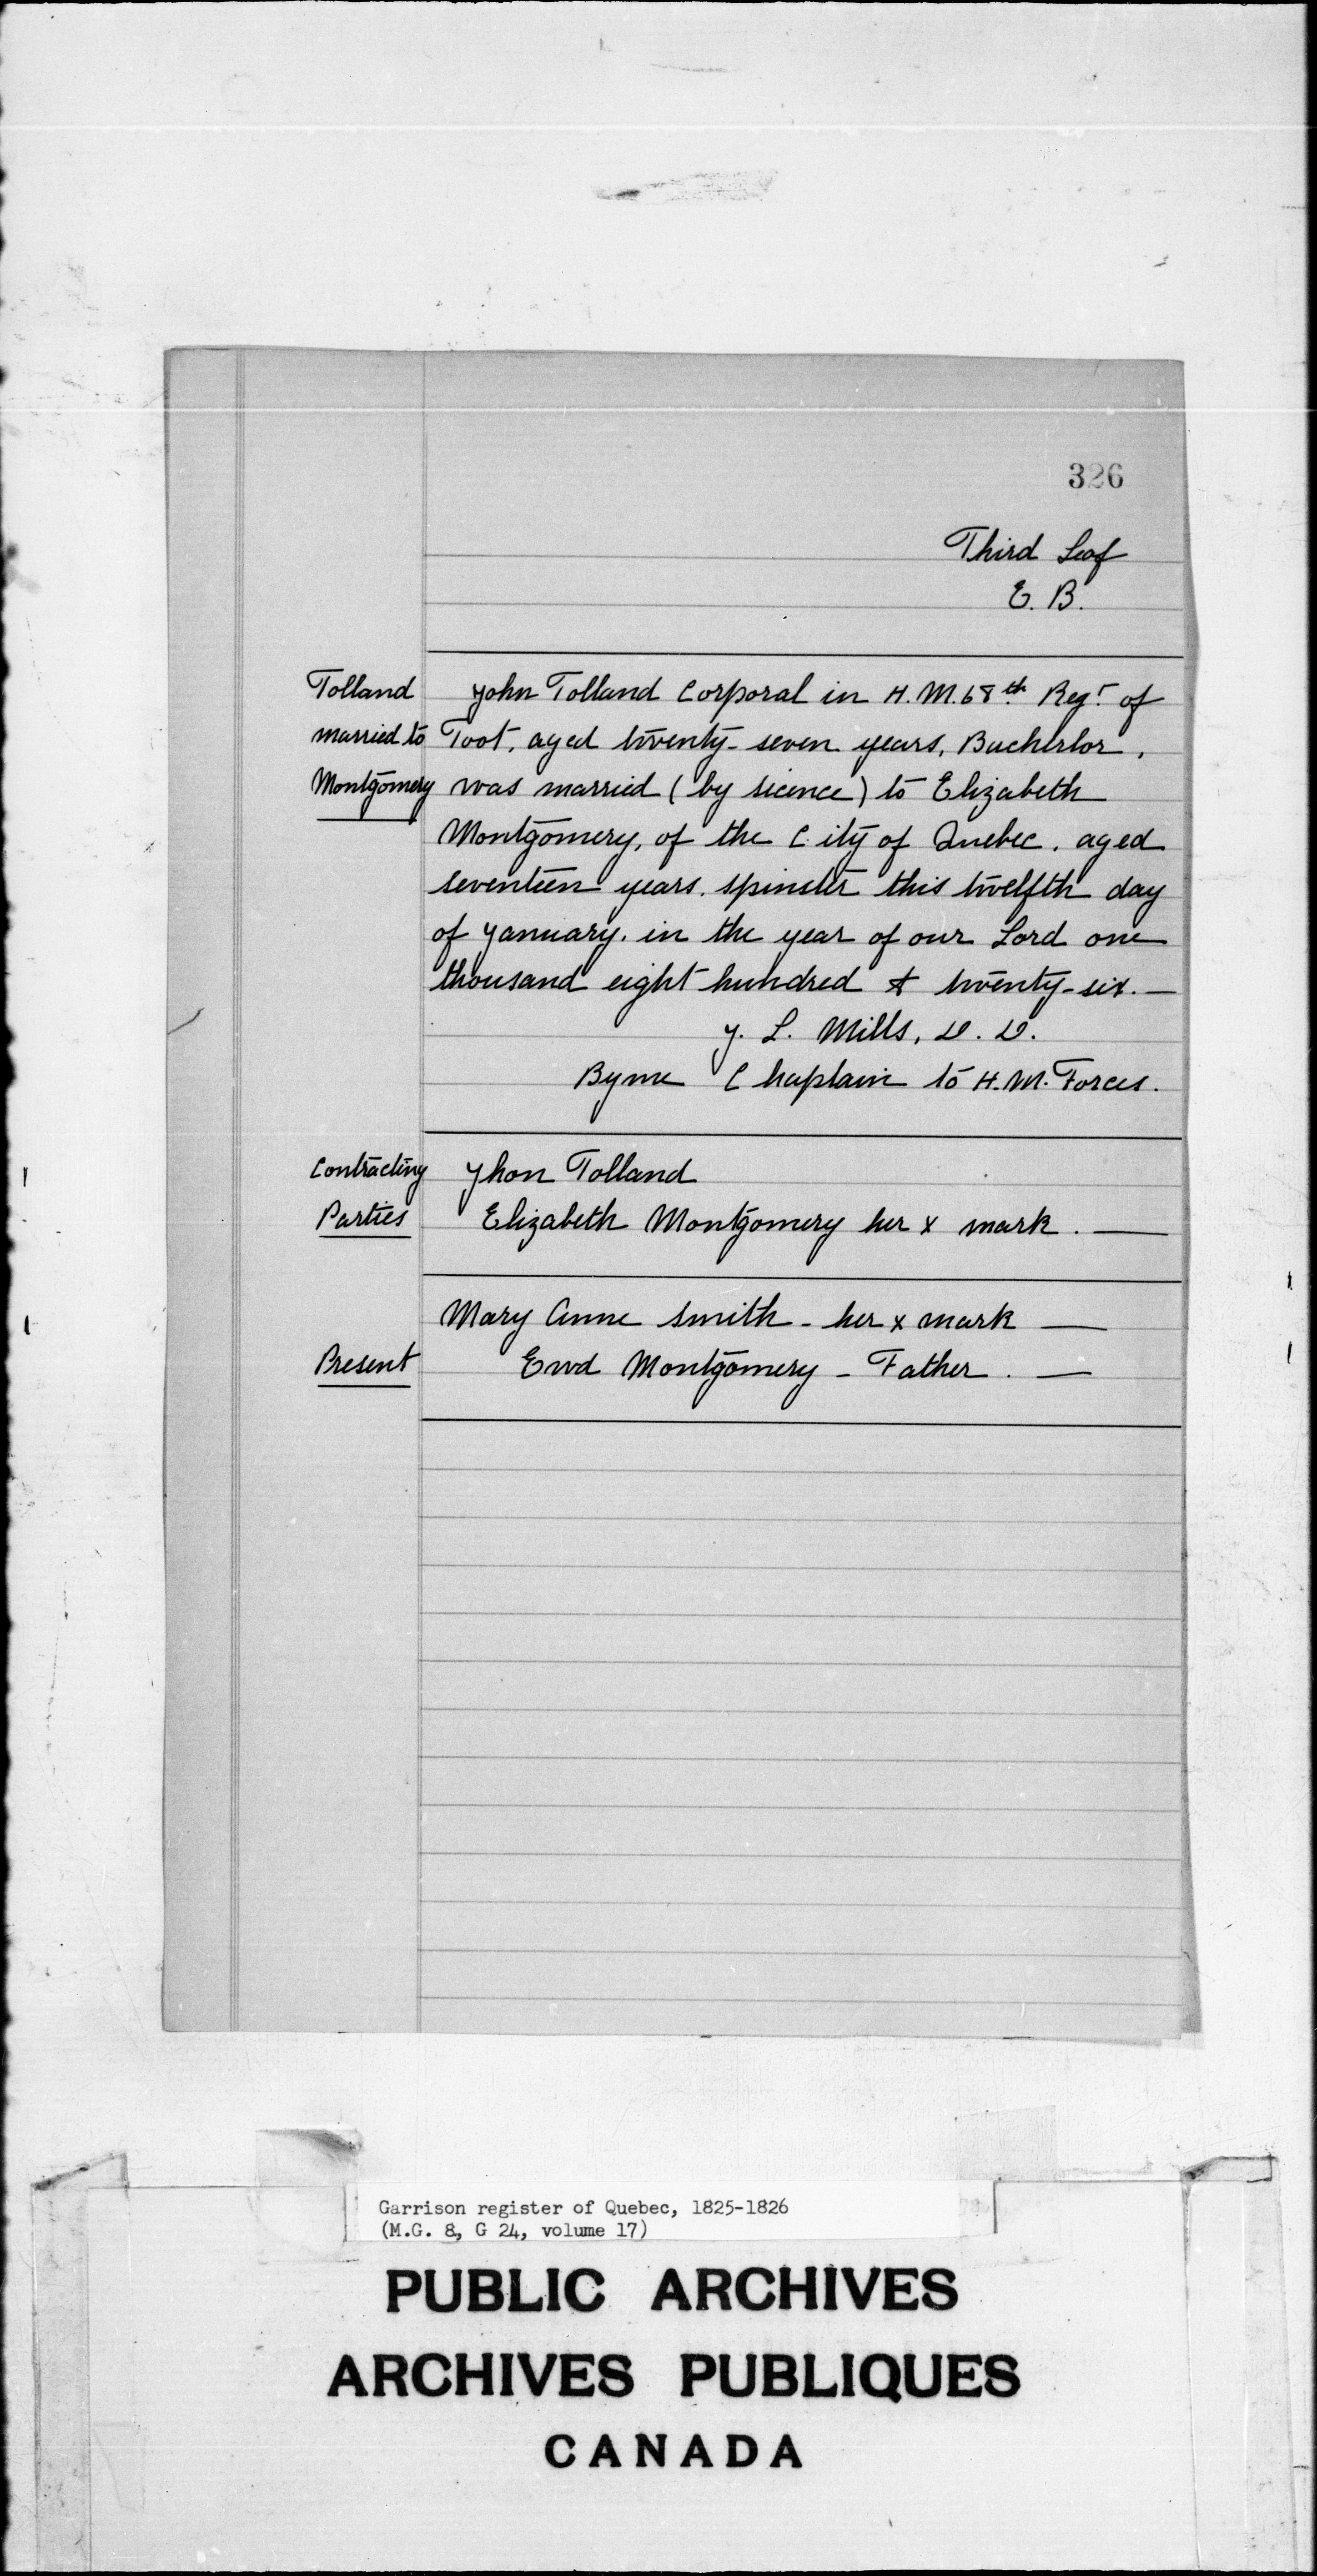 326
Third Leaf
E. B.
Tolland
married to
Montgomery
John Tolland Corporal in H. M. 68th Regt of
Foot, aged twenty-seven years, Bacherlor,
was married (by licence) to Elizabeth
Montgomery, of the City of Quebec, aged
seventeen years, spinster this twelfth day
of January, in the year of our Lord one
thousand eight hundred & twenty-six. —
J. L. Mills, D. D.
By me Chaplain to H. M. Forces.
Contracting
Parties
Jhon Tolland
Elizabeth Montgomery her x mark. —
Present
Mary Anne Smith - her x mark —
Ewd Montgomery - Father. —
Garrison register of Quebec, 1825-1826
(M.G. 8, G 24, volume 17)
PUBLIC ARCHIVES
ARCHIVES PUBLIQUES
CANADA